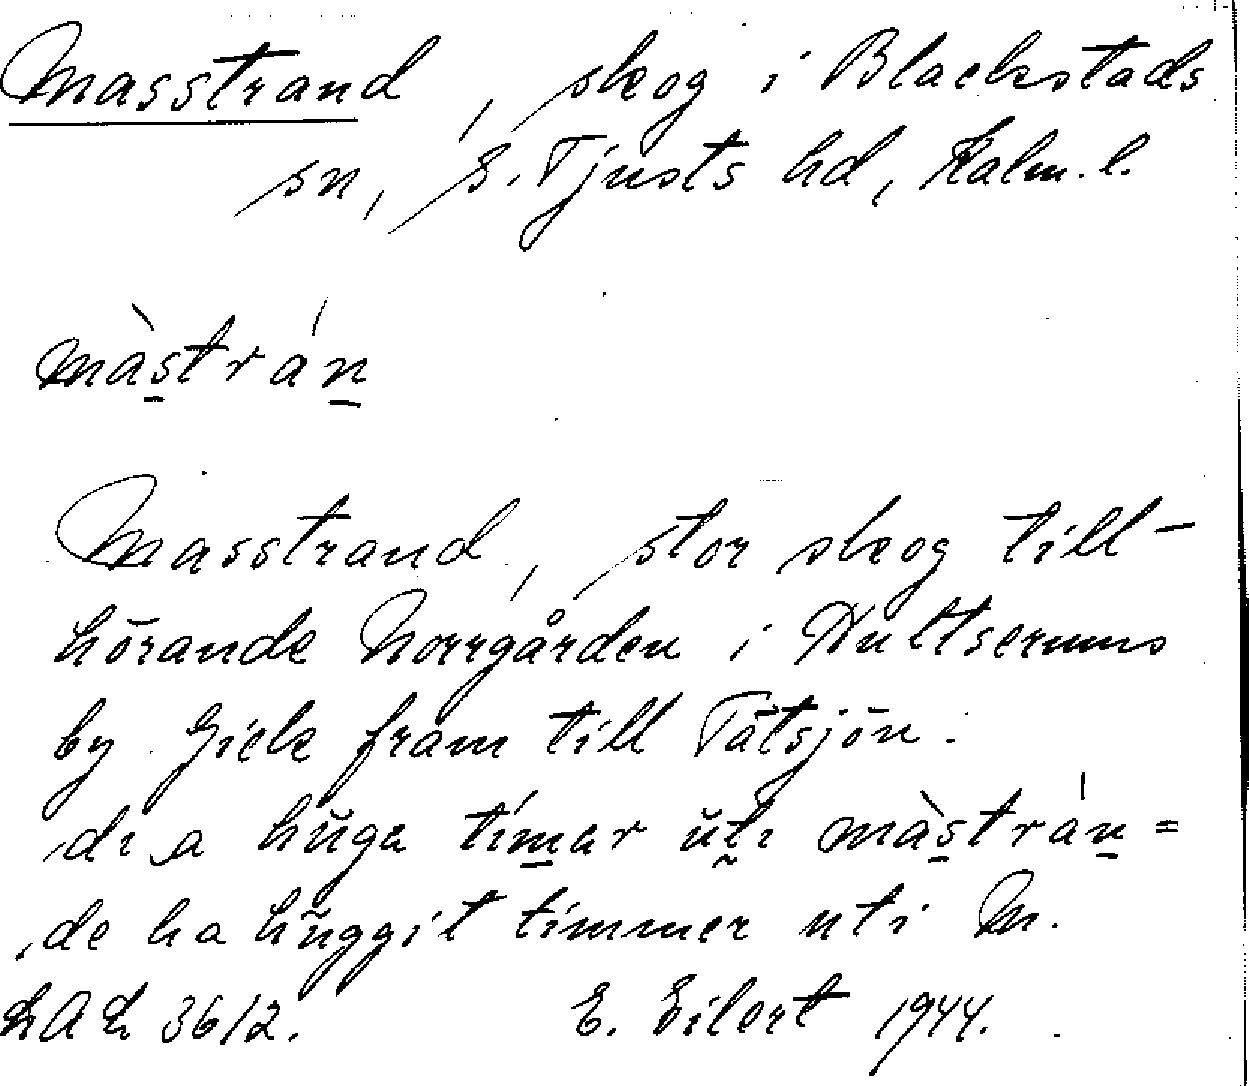 Masstrand, skog i Blackstads
sn, S. Tjusts hd, Kalm. l.
màstrán
Masstrand, stor skog till-
hörande Norrgården i Hultserums
by. Gick fram till Tätsjön.
di a huga timar uti màstrán =
de ha huggit timmer uti M.
LAL 3612. E. Eilert 1944.